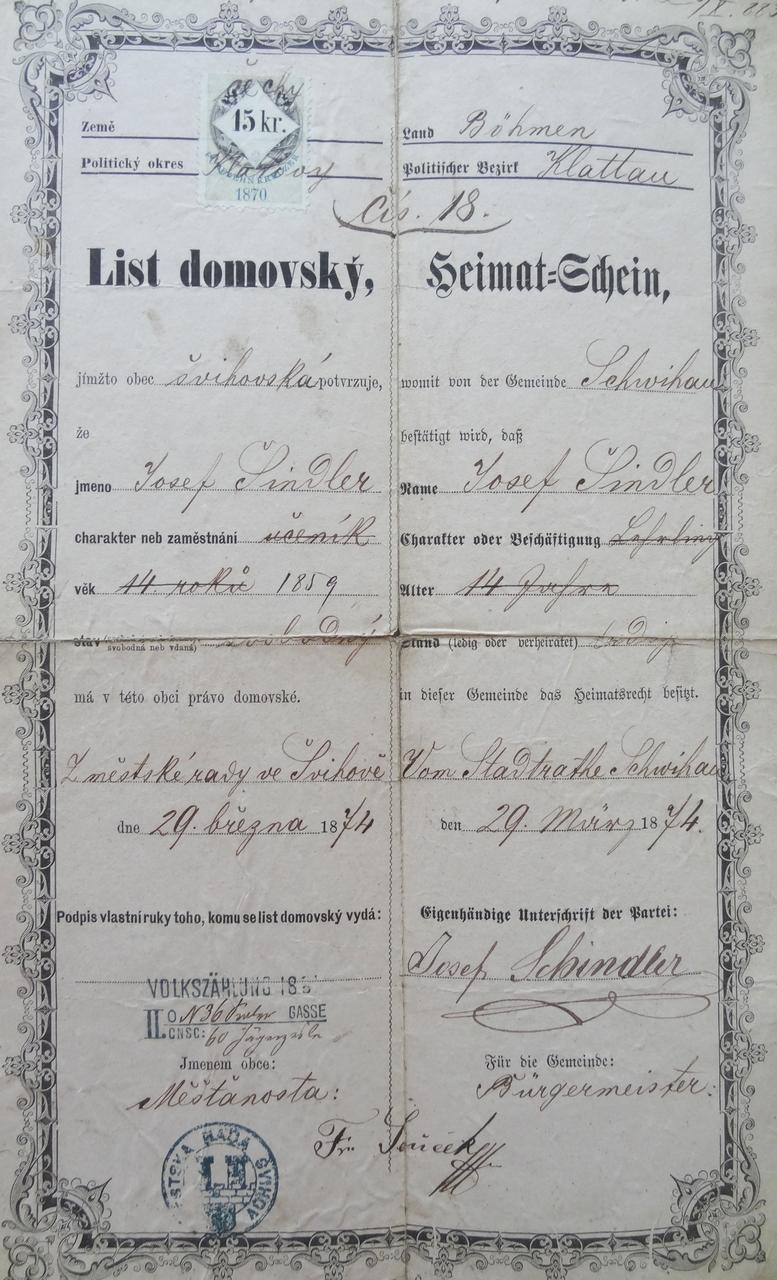 čechy
15 kr.
1870
Země
Politický okres Klatovy
Land Böhmen
Politischer Bezirk Klattau
čís. 18.
List domovský,
Heimat=Schein,
jímžto obec švihovská potvrzuje,
že
jmeno Josef Šindler
charakter neb zaměstnání učeník
věk 14. roků 1859
stav svobodná neb vdaná) svobodný
má v této obci právo domovské.
Z městské rady ve Švihově
dne 29. března 1874
Podpis vlastní ruky toho, komu se list domovský vydá:
womit von der Gemeinde Schwihau
bestätigt wird, daß
Name Josef Šindler
Charakter oder Beschäftigung Lehrling
Alter 14 Jahre
Stand (ledig oder verheiratet) ledig
in dieser Gemeinde das Heimatsrecht besitzt.
Vom Stadtrathe Schwihau
den 29. März 1874.
Eigenhändige Unterschrift der Partei:
Josef Schindler
VOLKSZÄHLUNG 18
II. O N 36 GASSE
CNSC: 60
Jmenem obce:
Měšťanosta:
Für die Gemeinde:
Bürgermeister:
Frn Souček
RADA ŠVIHOV